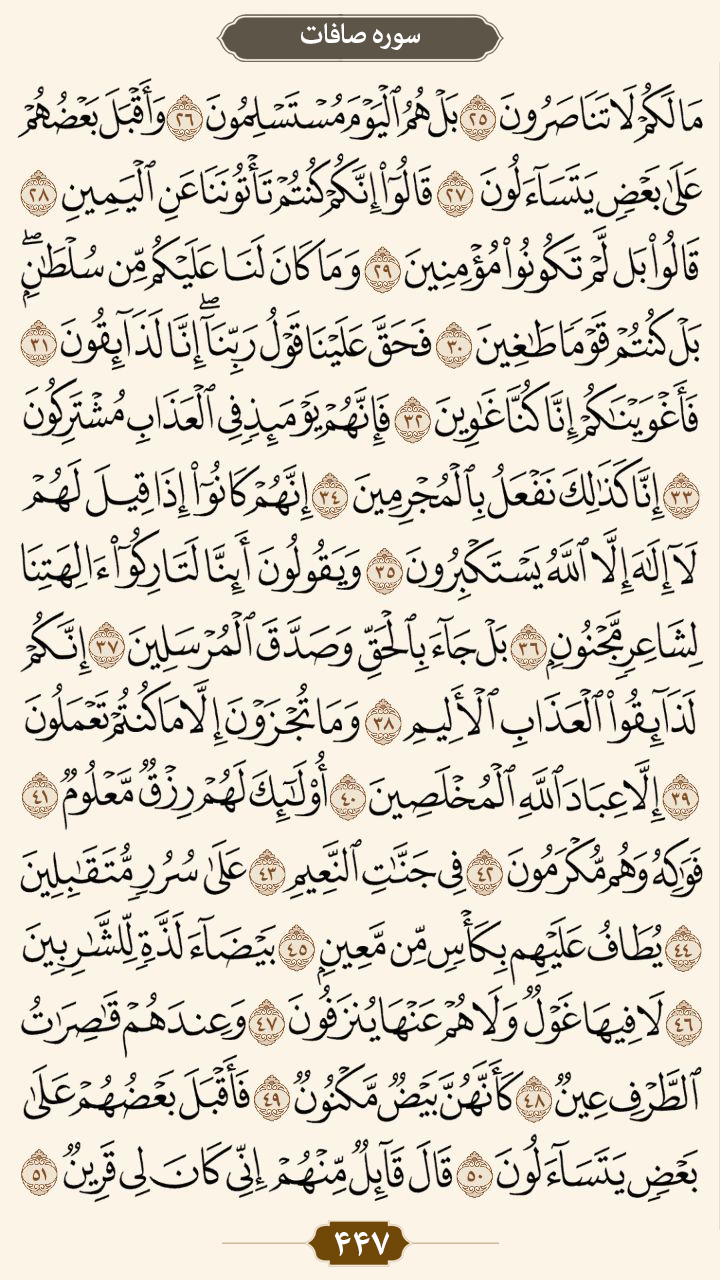 سوره صافات
مَا لَكُمْ لَا تَنَاصَرُونَ ٢٥ بَلْ هُمُ ٱلْيَوْمَ مُسْتَسْلِمُونَ ٢٦ وَأَقْبَلَ بَعْضُهُمْ
عَلَىٰ بَعْضٍ يَتَسَآءَلُونَ ٢٧ قَالُوٓا۟ إِنَّكُمْ كُنتُمْ تَأْتُونَنَا عَنِ ٱلْيَمِينِ ٢٨
قَالُوا۟ بَل لَّمْ تَكُونُوا۟ مُؤْمِنِينَ ٢٩ وَمَا كَانَ لَنَا عَلَيْكُم مِّن سُلْطَٰنٍۭ ۖ
بَلْ كُنتُمْ قَوْمًا طَٰغِينَ ٣٠ فَحَقَّ عَلَيْنَا قَوْلُ رَبِّنَآ ۖ إِنَّا لَذَآئِقُونَ ٣١
فَأَغْوَيْنَٰكُمْ إِنَّا كُنَّا غَٰوِينَ ٣٢ فَإِنَّهُمْ يَوْمَئِذٍ فِى ٱلْعَذَابِ مُشْتَرِكُونَ
٣٣ إِنَّا كَذَٰلِكَ نَفْعَلُ بِٱلْمُجْرِمِينَ ٣٤ إِنَّهُمْ كَانُوٓا۟ إِذَا قِيلَ لَهُمْ
لَآ إِلَٰهَ إِلَّا ٱللَّهُ يَسْتَكْبِرُونَ ٣٥ وَيَقُولُونَ أَئِنَّا لَتَارِكُوٓا۟ ءَالِهَتِنَا
لِشَاعِرٍ مَّجْنُونٍۭ ٣٦ بَلْ جَآءَ بِٱلْحَقِّ وَصَدَّقَ ٱلْمُرْسَلِينَ ٣٧ إِنَّكُمْ
لَذَآئِقُوا۟ ٱلْعَذَابِ ٱلْأَلِيمِ ٣٨ وَمَا تُجْزَوْنَ إِلَّا مَا كُنتُمْ تَعْمَلُونَ
٣٩ إِلَّا عِبَادَ ٱللَّهِ ٱلْمُخْلَصِينَ ٤٠ أُو۟لَٰٓئِكَ لَهُمْ رِزْقٌ مَّعْلُومٌ ٤١
فَوَٰكِهُ وَهُم مُّكْرَمُونَ ٤٢ فِى جَنَّٰتِ ٱلنَّعِيمِ ٤٣ عَلَىٰ سُرُرٍ مُّتَقَٰبِلِينَ
٤٤ يُطَافُ عَلَيْهِم بِكَأْسٍ مِّن مَّعِينٍۭ ٤٥ بَيْضَآءَ لَذَّةٍ لِّلشَّٰرِبِينَ
٤٦ لَا فِيهَا غَوْلٌ وَلَا هُمْ عَنْهَا يُنزَفُونَ ٤٧ وَعِندَهُمْ قَٰصِرَٰتُ
ٱلطَّرْفِ عِينٌ ٤٨ كَأَنَّهُنَّ بَيْضٌ مَّكْنُونٌ ٤٩ فَأَقْبَلَ بَعْضُهُمْ عَلَىٰ
بَعْضٍ يَتَسَآءَلُونَ ٥٠ قَالَ قَآئِلٌ مِّنْهُمْ إِنِّى كَانَ لِى قَرِينٌ ٥١
۴۴۷